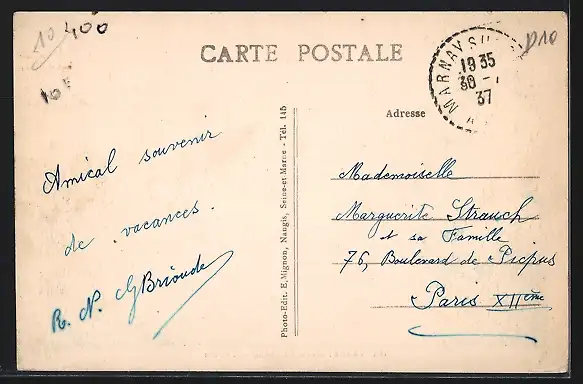 10 400
10F
D10
CARTE POSTALE
MARNAY SU
19 35
30 -
37
Adresse
Amical souvenir
de vacances.
R. N. GBrioude
Photo-Edit. E. Mignon, Nangis, Seine-et-Marne - Tél. 145
Mademoiselle
Marguerite Strauch
et sa Famille
76, Boulevard de Picpus
Paris XIIème